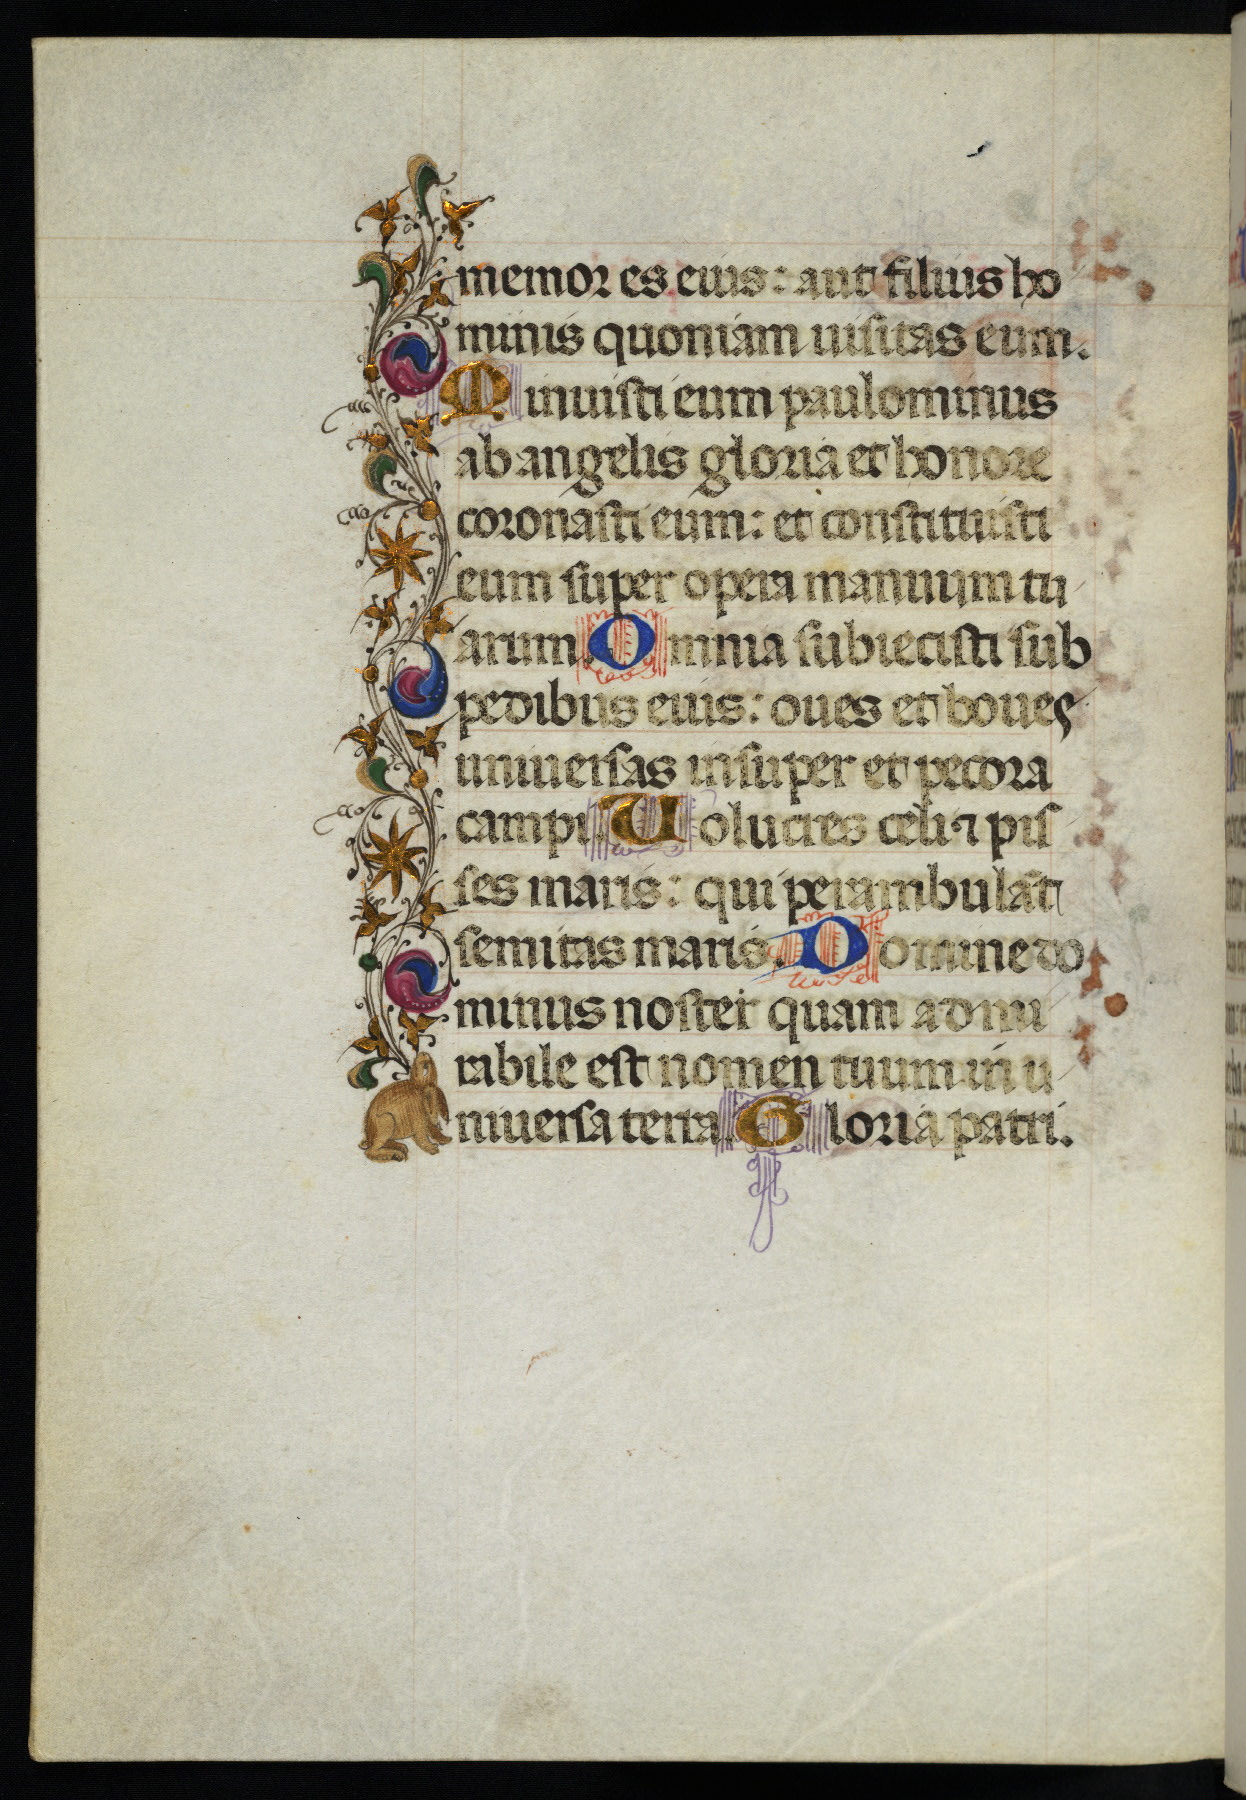 memor es eius: aut filius ho
minis quoniam uisitas eum.
Minuisti eum paulominus
ab angelis gloria et honore
coronasti eum: et constituisti
eum super opera manuum tu
arum. Omnia subiecisti sub
pedibus eius: oues et boues
uniuersas insuper et pecora
campi. Uolucres celi ⁊ pis
ses maris: qui perambulāt
semitas maris. Domine do
minus noster quam admi
rabile est nomen tuum in u
niuersa terra. Gloria patri.